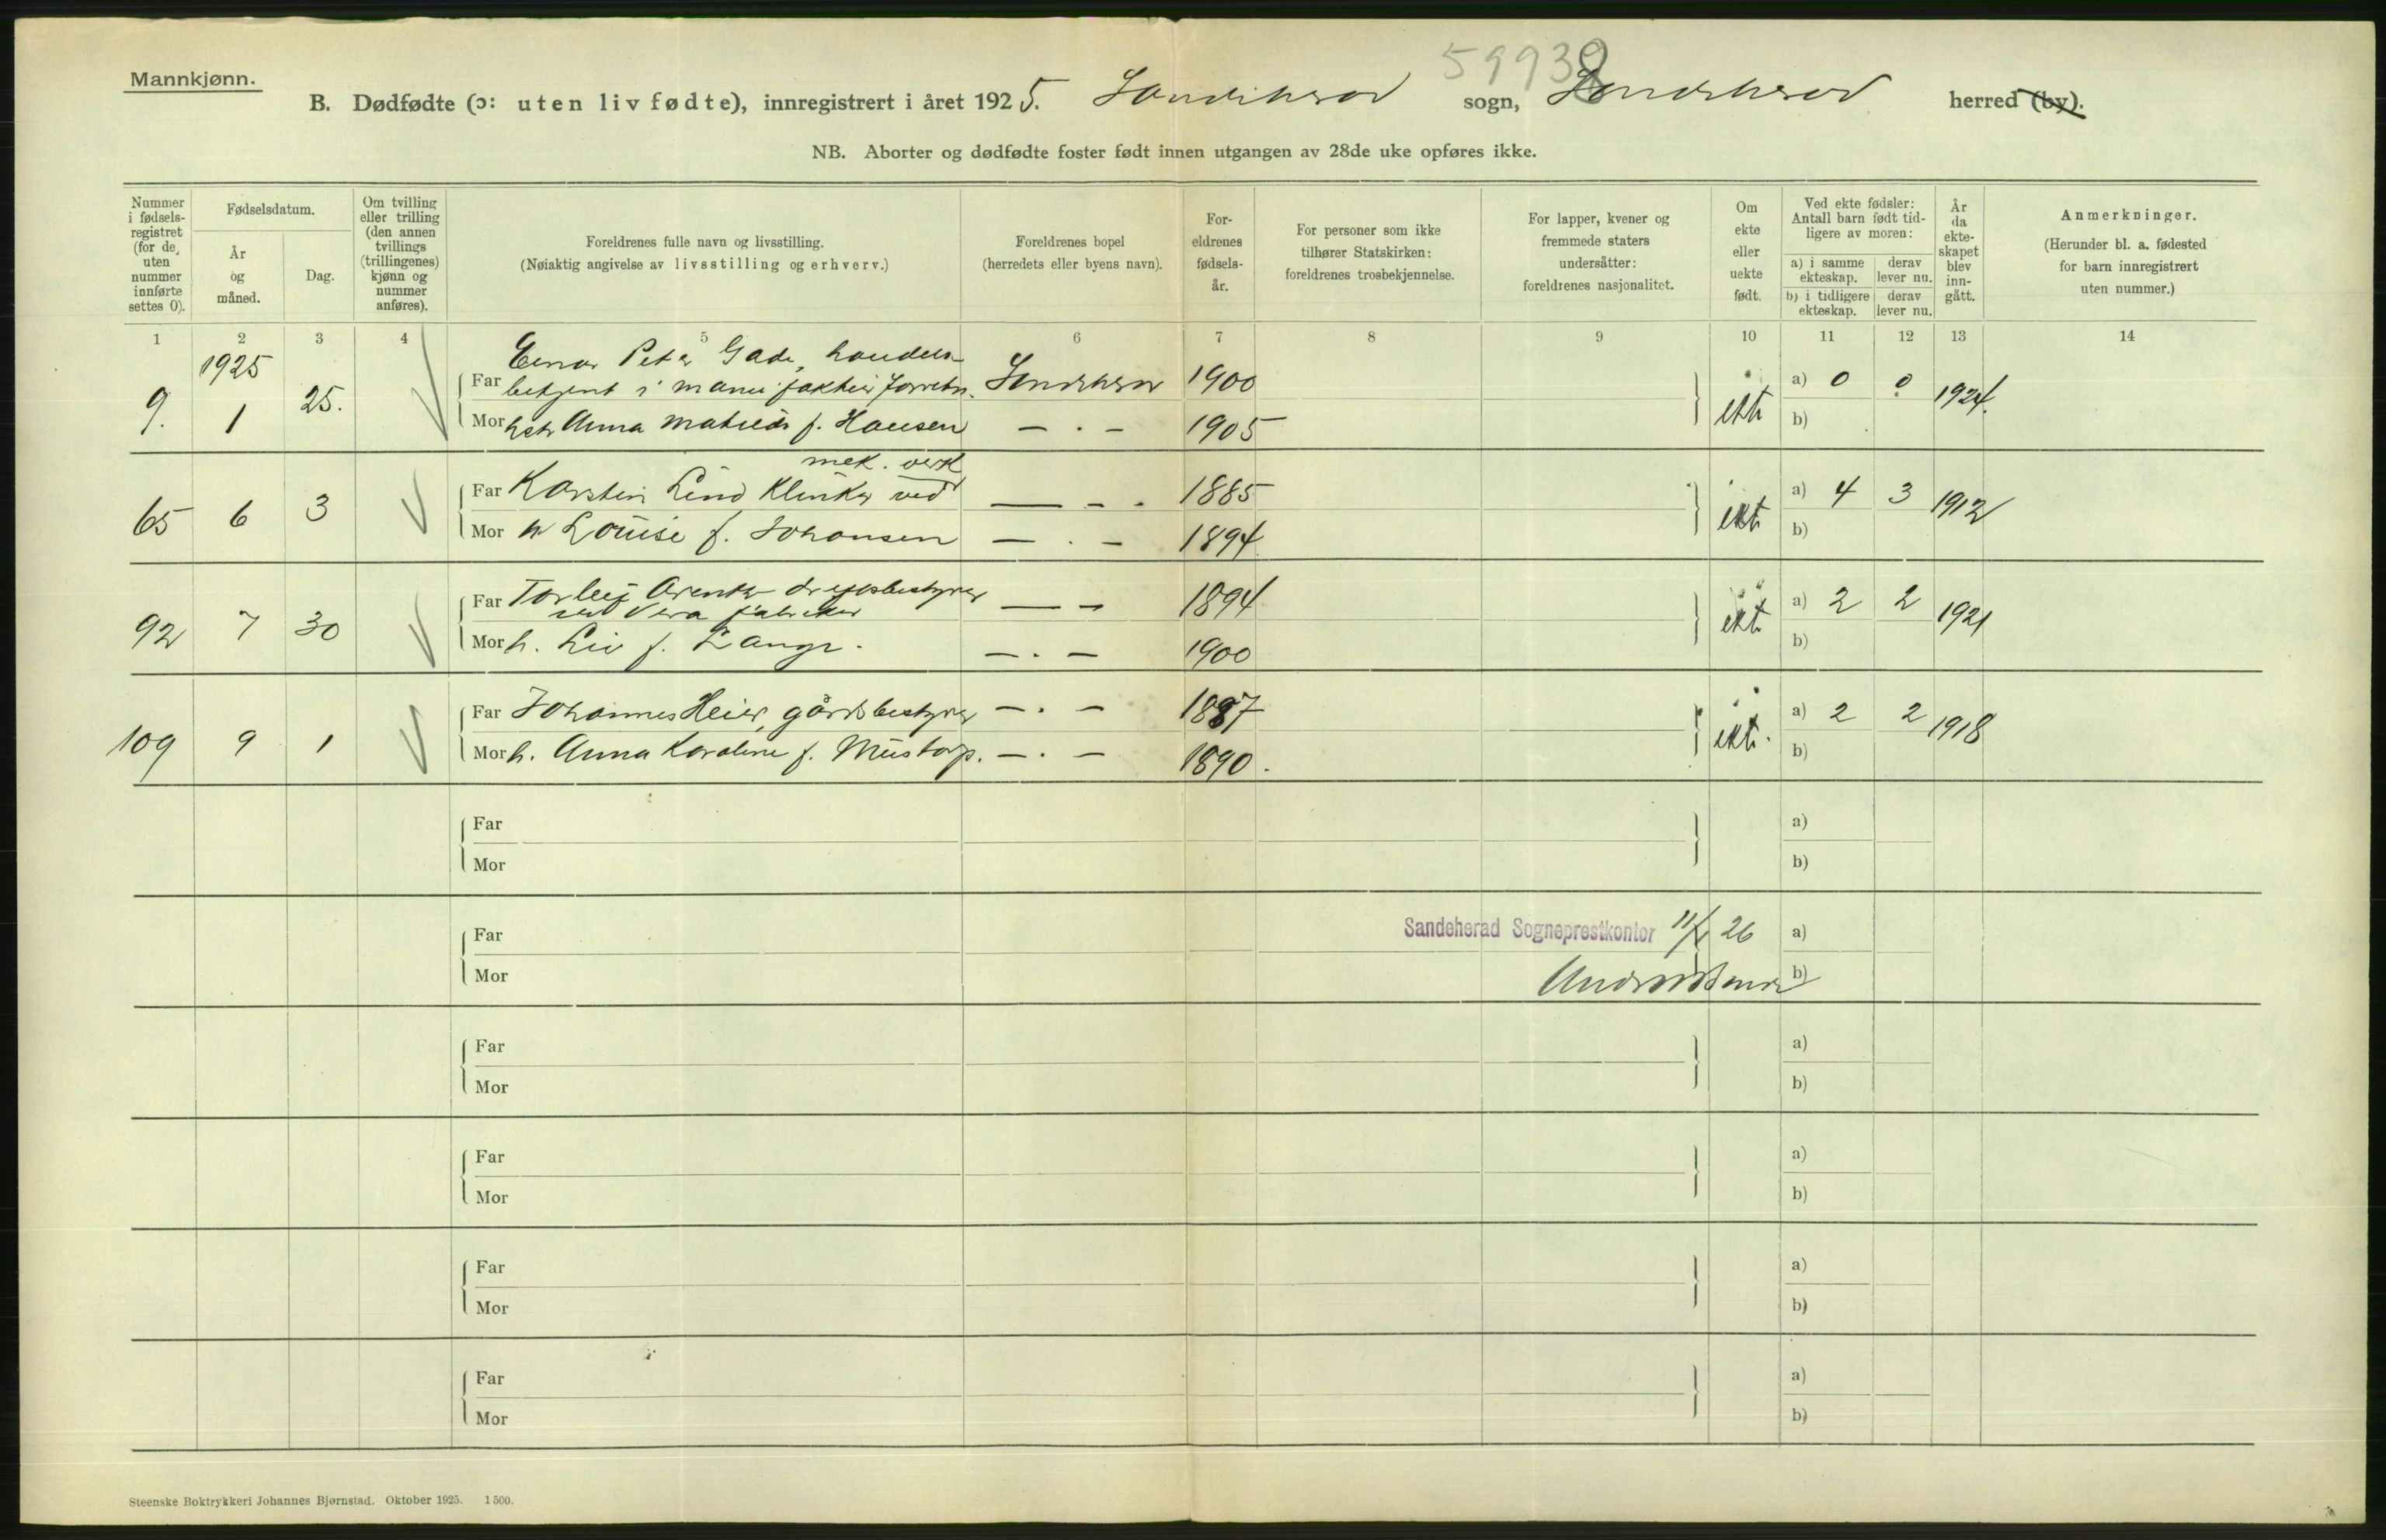 59938
Mannkjønn.
B. Dødfødte (ɔ: uten liv fødte), innregistrert i året 1925. Sandeherad sogn, Sandeherad herred (by).
NB. Aborter og dødfødte foster født innen utgangen av 28de uke opføres ikke.
Nummer i fødsels- registret (for de uten nummer innførte settes 0).
Fødselsdatum.
År og måned.
Dag.
Om tvilling eller trilling (den annen tvillings (trillingenes) kjønn og nummer anføres).
Foreldrenes fulle navn og livsstilling.
(Nøiaktig angivelse av livsstilling og erhverv.)
Foreldrenes bopel
(herredets eller byens navn).
For- eldrenes fødsels- år.
For personer som ikke tilhører Statskirken: foreldrenes trosbekjennelse.
For lapper, kvener og fremmede staters undersåtter: foreldrenes nasjonalitet.
Om ekte eller uekte født.
Ved ekte fødsler: Antall barn født tid- ligere av moren:
a) i samme ekteskap.
derav lever nu.
b) i tidligere ekteskap.
derav lever nu.
År da ekte- skapet blev inn- gått.
Anmerkninger.
(Herunder bl. a. fødested for barn innregistrert uten nummer.)
1 2 3 4 5 6 7 8 9 10 11 12 13 14
1925
Einar Peter Gade, handels-
9. 1 25. Far betjent i manufaktur forretn. Sandeherad 1900 ekte a) 0 0 1924.
Mor Anna Matilde f. Hansen — . — 1905 b)
mek. verk
65 6 3 Far Karsten Lind Klinker ved — - - 1885 ekt a) 4 3 1912
Mor h Louise f. Johansen — . — 1894 b)
92 7 30 Far Torleif driftsbestyrer — — 1894 ekt a) 2 2 1921
ved Vera fabrikker
Mor h. Liv f. Lange. — . — 1900 b)
109 9 1 Far Johannes Heier, gårdsbestyrer — . — 1887 ekte. a) 2 2 1918
Mor h. Anna Karoline f. Mustorp. — . — 1890. b)
Far a)
Mor b)
Sandeherad Sogneprestkontor 11/1 26
Far a)
Mor b)
Far a)
Mor b)
Far a)
Mor b)
Far a)
Mor b)
Far a)
Mor b)
Steenske Boktrykkeri Johannes Bjørnstad. Oktober 1925. 1 500.